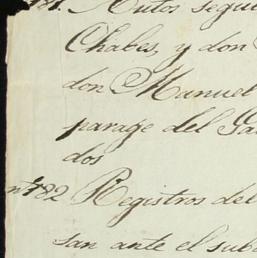 181. Autos segui
Chabes, y don
don Manuel
parage del Sa
dos
nº 182 Registros del
san ante el sub